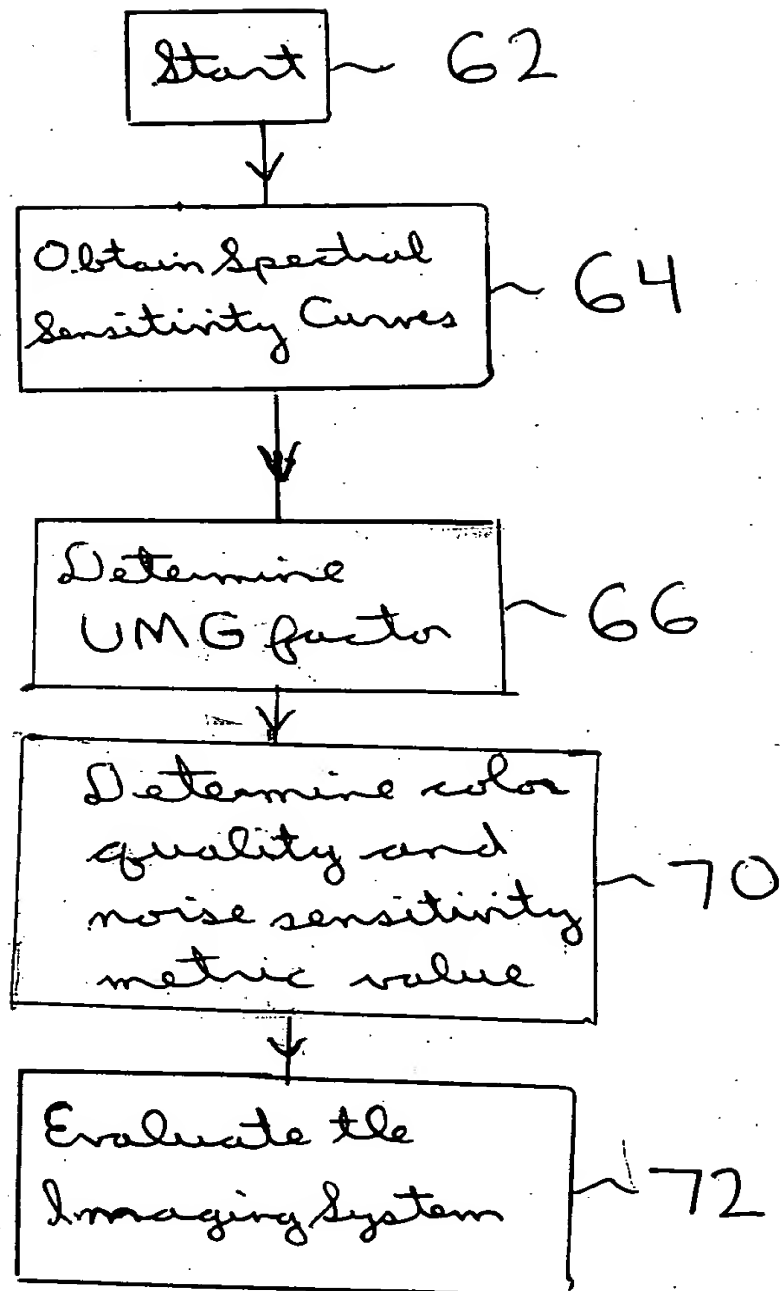 Start 62
Obtain Spectral
Sensitivity Curves
64
Determine
UMG factor
66
Determine color
quality and
noise sensitivity
metric value
70
Evaluate the
Imaging System
72